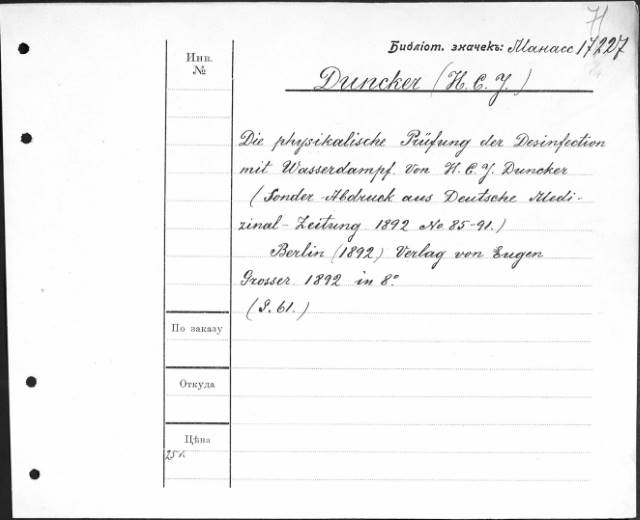 Библіот. значекъ: Манасс 17227
Инв.
№
Duncker (H. C. J.)
Die physikalische Prüfung der Desinfection
mit Wasserdampf. Von H. C. J. Duncker
(Sonder-Abdruck aus Deutsche Medi-
zinal-Zeitung 1892 No. 85-91.)
Berlin (1892) Verlag von Eugen
Grosser. 1892 in 8°
(S. 61.)
По заказу
Откуда
Цѣна
25 к